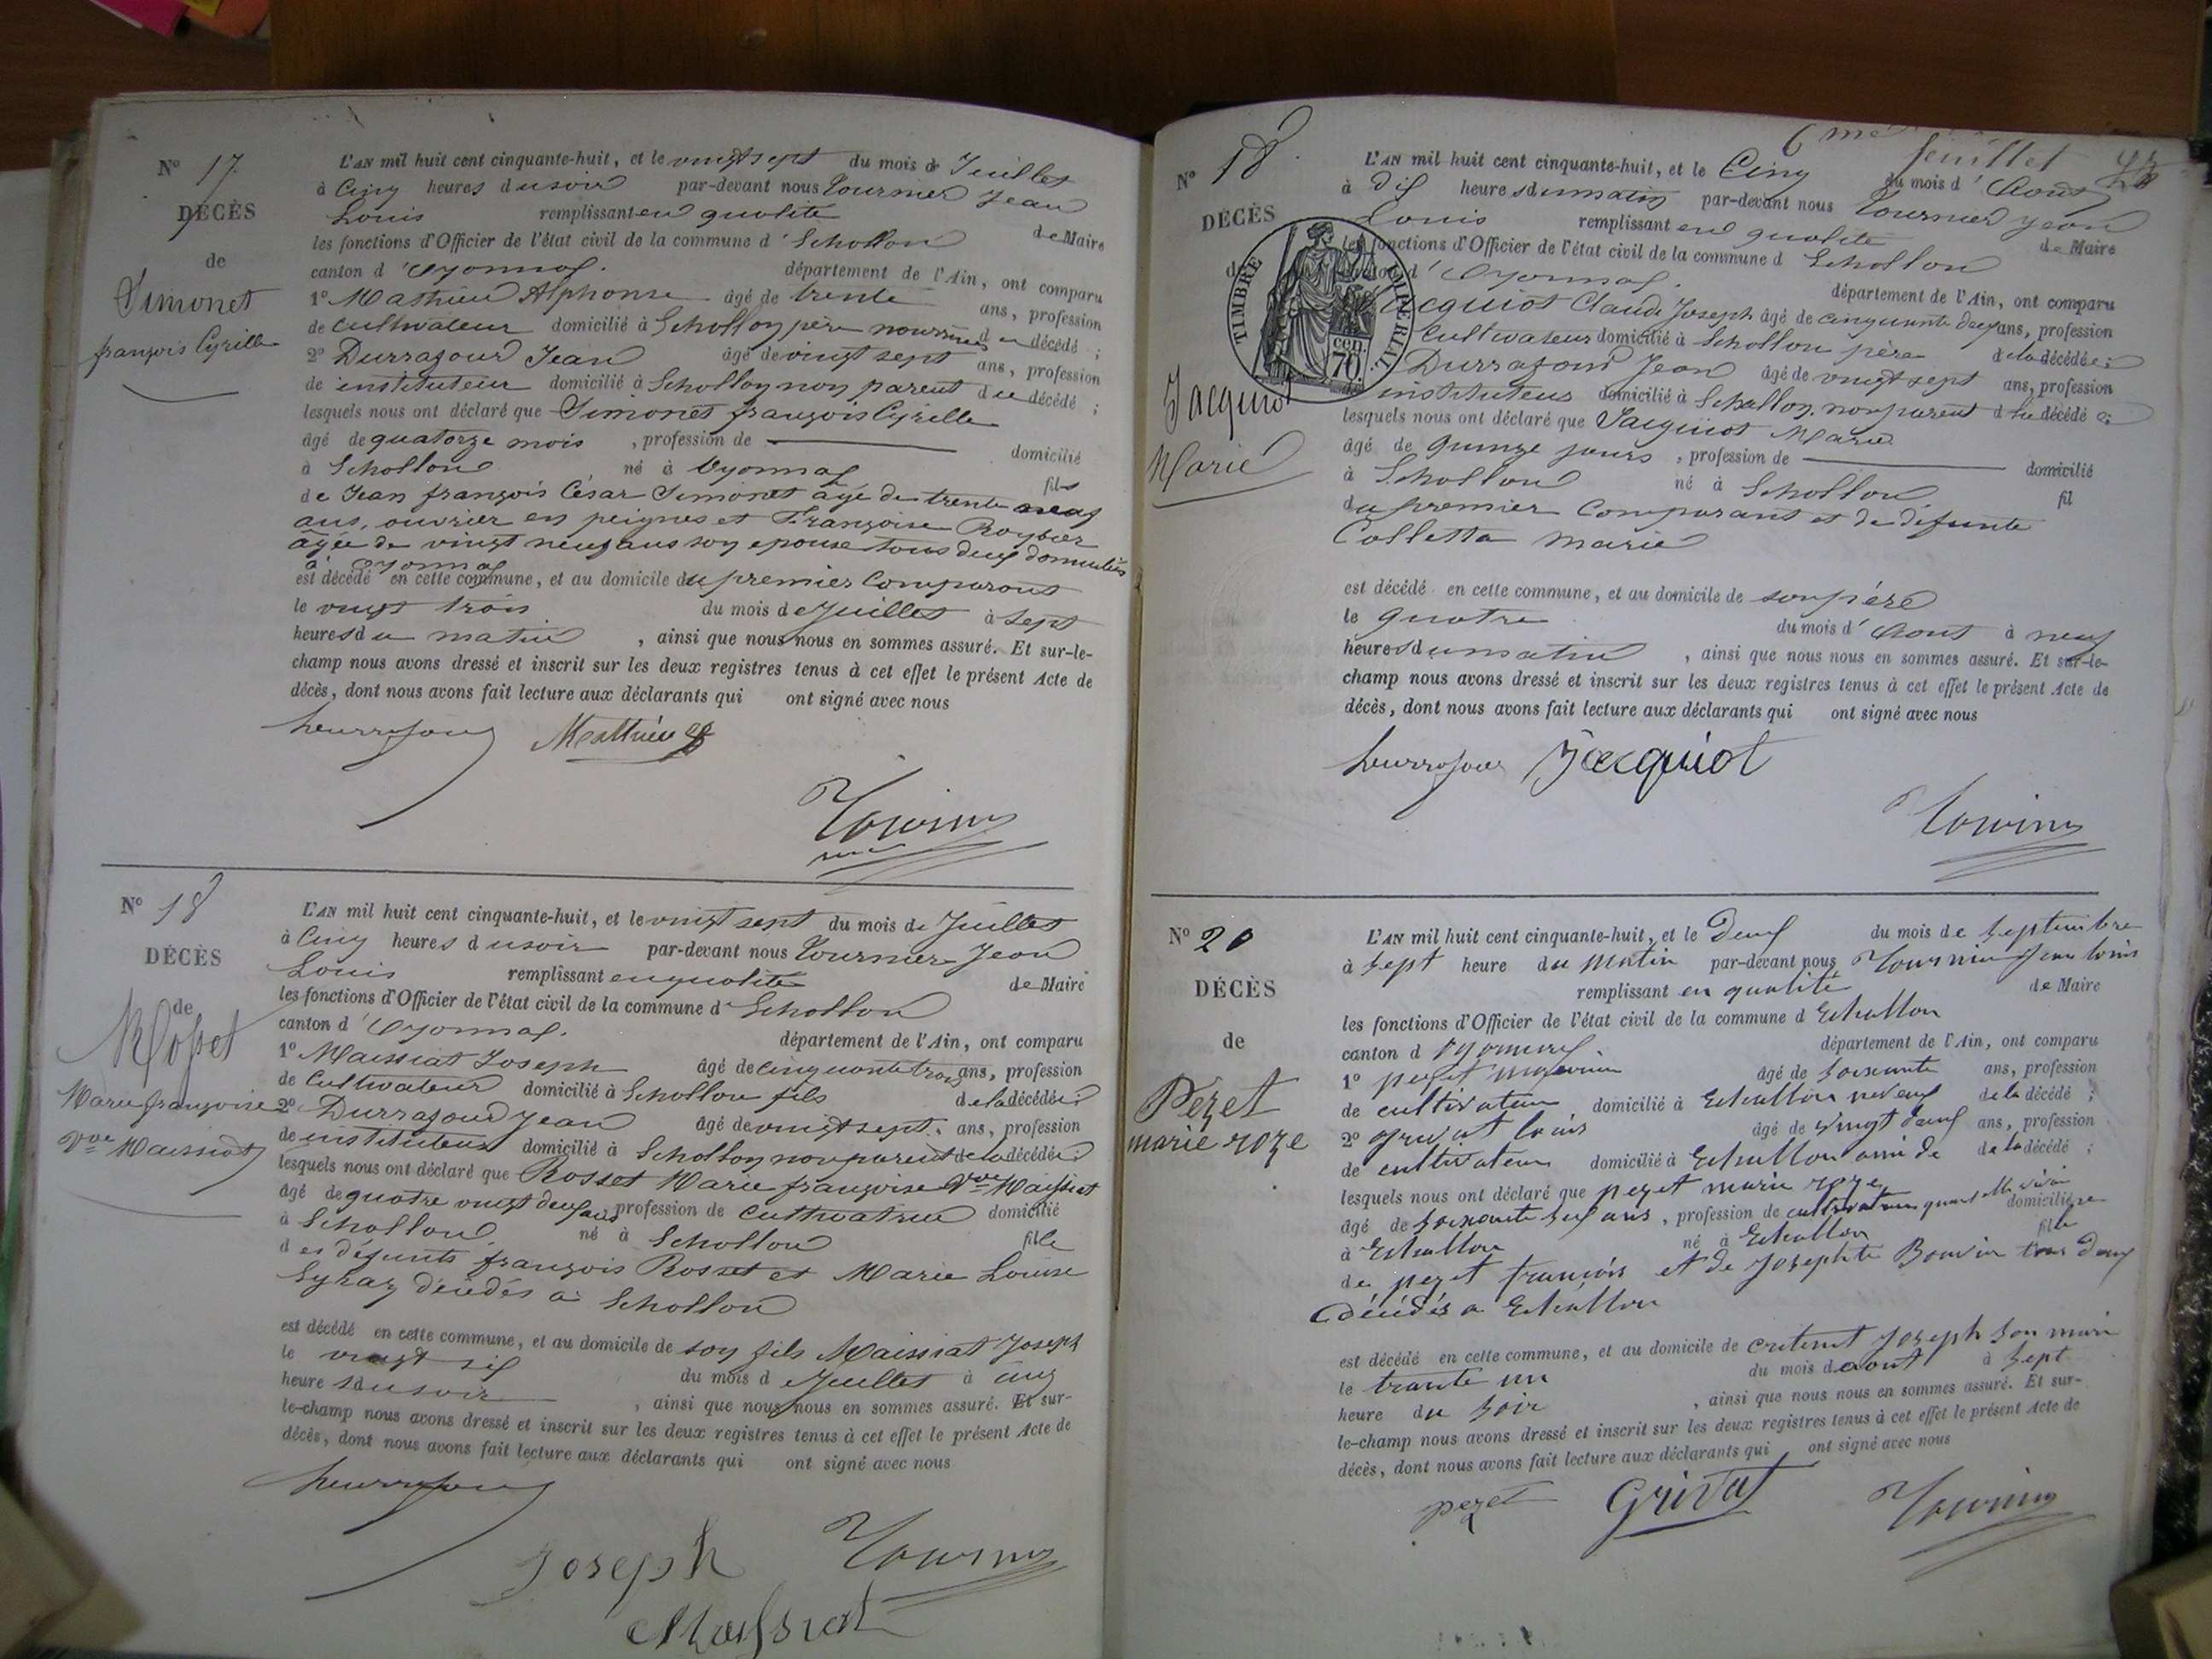 N° 17
DÉCÈS
de
Simonet
françois Cyrille
L'AN mil huit cent cinquante-huit, et le vingt sept du mois de Juillet
à Cinq heures du soir par-devant nous Tournier Jean
Louis remplissant en qualité de Maire
les fonctions d'Officier de l'état civil de la commune d'Echallon
canton d'Oyonnax. département de l'Ain, ont comparu
1° Mathieu Alphonse âgé de trente ans, profession
de Cultivateur domicilié à Echallon père nourricier du décédé ;
2° Durrafourd Jean âgé de vingt sept ans, profession
de instituteur domicilié à Echallon non parent du décédé ;
lesquels nous ont déclaré que Simonet françois Cyrille
âgé de quatorze mois , profession de domicilié
à Echallon né à Oyonnax fils
de Jean françois César Simonet âgé de trente neuf
ans, ouvrier en peignes et Françoise Roybier
âgée de vingt neuf ans son epouse tous deux domiciliés
à Oyonnax
est décédé en cette commune, et au domicile du premier Comparant
le vingt trois du mois de Juillet à sept
heures du matin , ainsi que nous nous en sommes assuré. Et sur-le-
champ nous avons dressé et inscrit sur les deux registres tenus à cet effet le présent Acte de
décès, dont nous avons fait lecture aux déclarants qui ont signé avec nous
Mathieu
N° 18
DÉCÈS
de
Rosset
Marie françoise
Vve Maissiat
L'AN mil huit cent cinquante-huit, et le vingt sept du mois de Juillet
à Cinq heures du soir par-devant nous Tournier Jean
Louis remplissant en qualité de Maire
les fonctions d'Officier de l'état civil de la commune d'Echallon
canton d'Oyonnax. département de l'Ain, ont comparu
1° Maissiat Joseph âgé de cinquante trois ans, profession
de Cultivateur domicilié à Echallon fils de la décédée ;
2° Durrafourd Jean âgé de vingt sept ans, profession
de instituteur domicilié à Echallon non parent de la décédée ;
lesquels nous ont déclaré que Rosset Marie françoise Vve Maissiat
âgé de quatre vingt deux ans, profession de Cultivatrice domicilié
à Echallon né à Echallon fille
des défunts françois Rosset et Marie Louise
décédés à Echallon
est décédé en cette commune, et au domicile de son fils Maissiat Joseph
le vingt six du mois de Juillet à cinq
heures du soir , ainsi que nous nous en sommes assuré. Et sur-
le-champ nous avons dressé et inscrit sur les deux registres tenus à cet effet le présent Acte de
décès, dont nous avons fait lecture aux déclarants qui ont signé avec nous
Joseph
Maissiat
6me feuillet
N° 18
DÉCÈS
Jacquiot
Marie
TIMBRE IMPÉRIAL
70 cen.
L'AN mil huit cent cinquante-huit, et le Cinq du mois d'Aout
à dix heures du matin par-devant nous Tournier Jean
Louis remplissant en qualité de Maire
les fonctions d'Officier de l'état civil de la commune d Echallon
canton d'Oyonnax. département de l'Ain, ont comparu
Jacquiot Claude Joseph âgé de cinquante deux ans, profession
Cultivateur domicilié à Echallon père de la décédée ;
Durrafourd Jean âgé de vingt sept ans, profession
de instituteur domicilié à Echallon non parent de la décédée ;
lesquels nous ont déclaré que Jacquiot Marie
âgé de quinze jours , profession de domicilié
à Echallon né à Echallon fil
du premier Comparant et de défunte
Colletta Marie
est décédé en cette commune, et au domicile de son père
le quatre du mois d'Aout à neuf
heures du matin , ainsi que nous nous en sommes assuré. Et sur-le-
champ nous avons dressé et inscrit sur les deux registres tenus à cet effet le présent Acte de
décès, dont nous avons fait lecture aux déclarants qui ont signé avec nous
Jacquiot
N° 20
DÉCÈS
de
Pezet
marie roze
L'AN mil huit cent cinquante-huit, et le Deux du mois de Septembre
à Sept heure du matin par-devant nous Tournier Jean louis
remplissant en qualité de Maire
les fonctions d'Officier de l'état civil de la commune d Echallon
canton d Oyonnax. département de l'Ain, ont comparu
1° pezet âgé de soixante ans, profession
de cultivateur domicilié à Echallon neveux de la décédé ;
2° grivat louis âgé de vingt deux ans, profession
de cultivateur domicilié à Echallon ami de de la décédé ;
lesquels nous ont déclaré que pezet marie roze
âgé de soixante dix ans , profession de domicilié
à Echallon né à Echallon fille
de pezet françois et de Josephte Bouvier tous deux
décédés a Echallon
est décédé en cette commune, et au domicile de Joseph son mari
le trante un du mois de aout à sept
heure du soir , ainsi que nous nous en sommes assuré. Et sur-
le-champ nous avons dressé et inscrit sur les deux registres tenus à cet effet le présent Acte de
décès, dont nous avons fait lecture aux déclarants qui ont signé avec nous
pezet Grivat